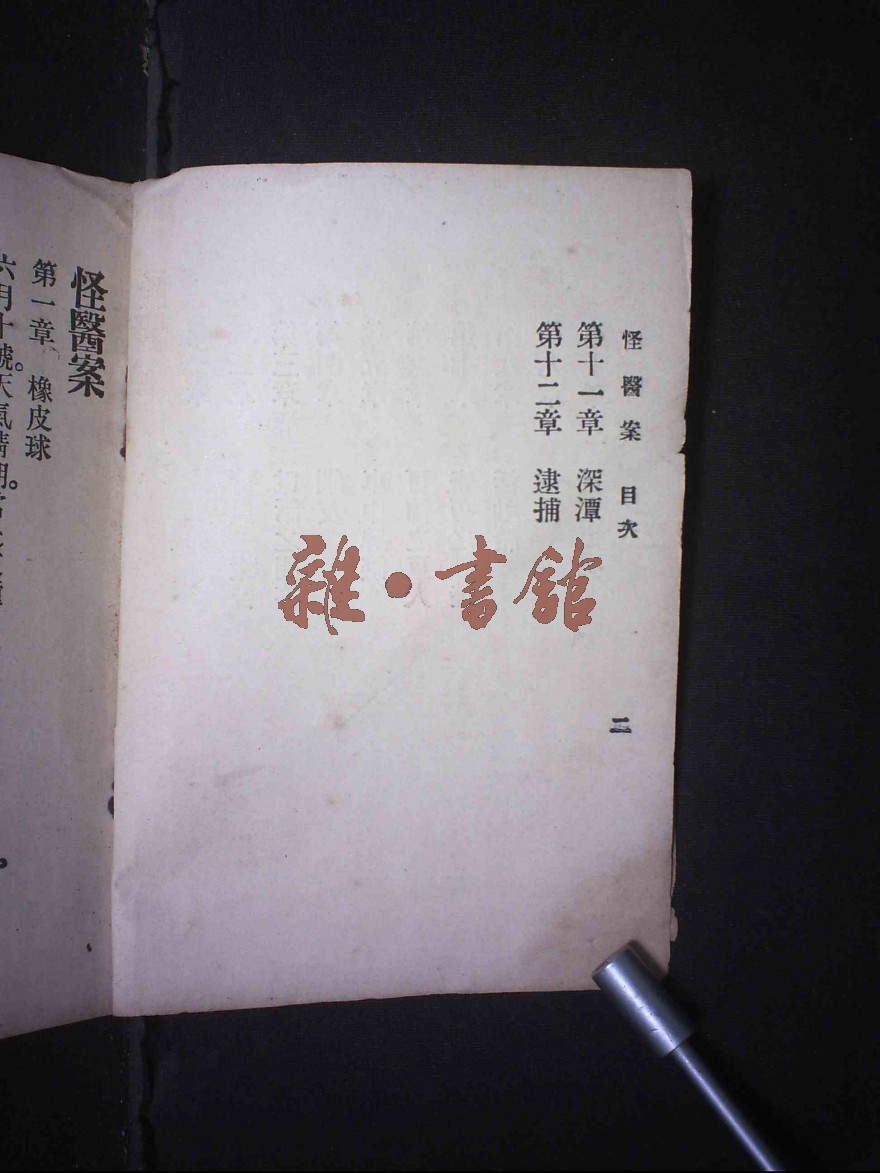 怪醫案　目次
第十一章　深潭
第十二章　逮捕
二
雜·書舘
怪醫案
第一章　橡皮球
六月十號。天氣晴朗。